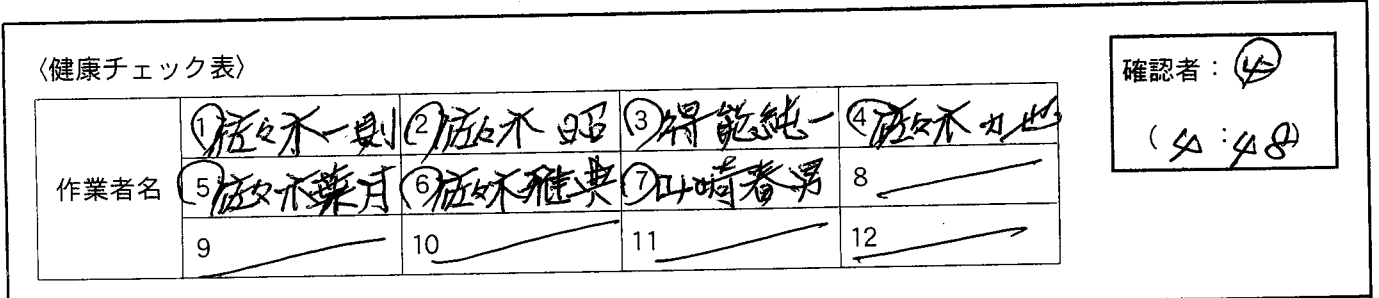 〈健康チェック表〉
確認者：④
(4:48)
作業者名
①佐々木一則 ②佐々木 昭 ③得能純一 ④佐々木力也
⑤佐々木葉月 ⑥佐々木雅典 ⑦山崎春男 8
9 10 11 12